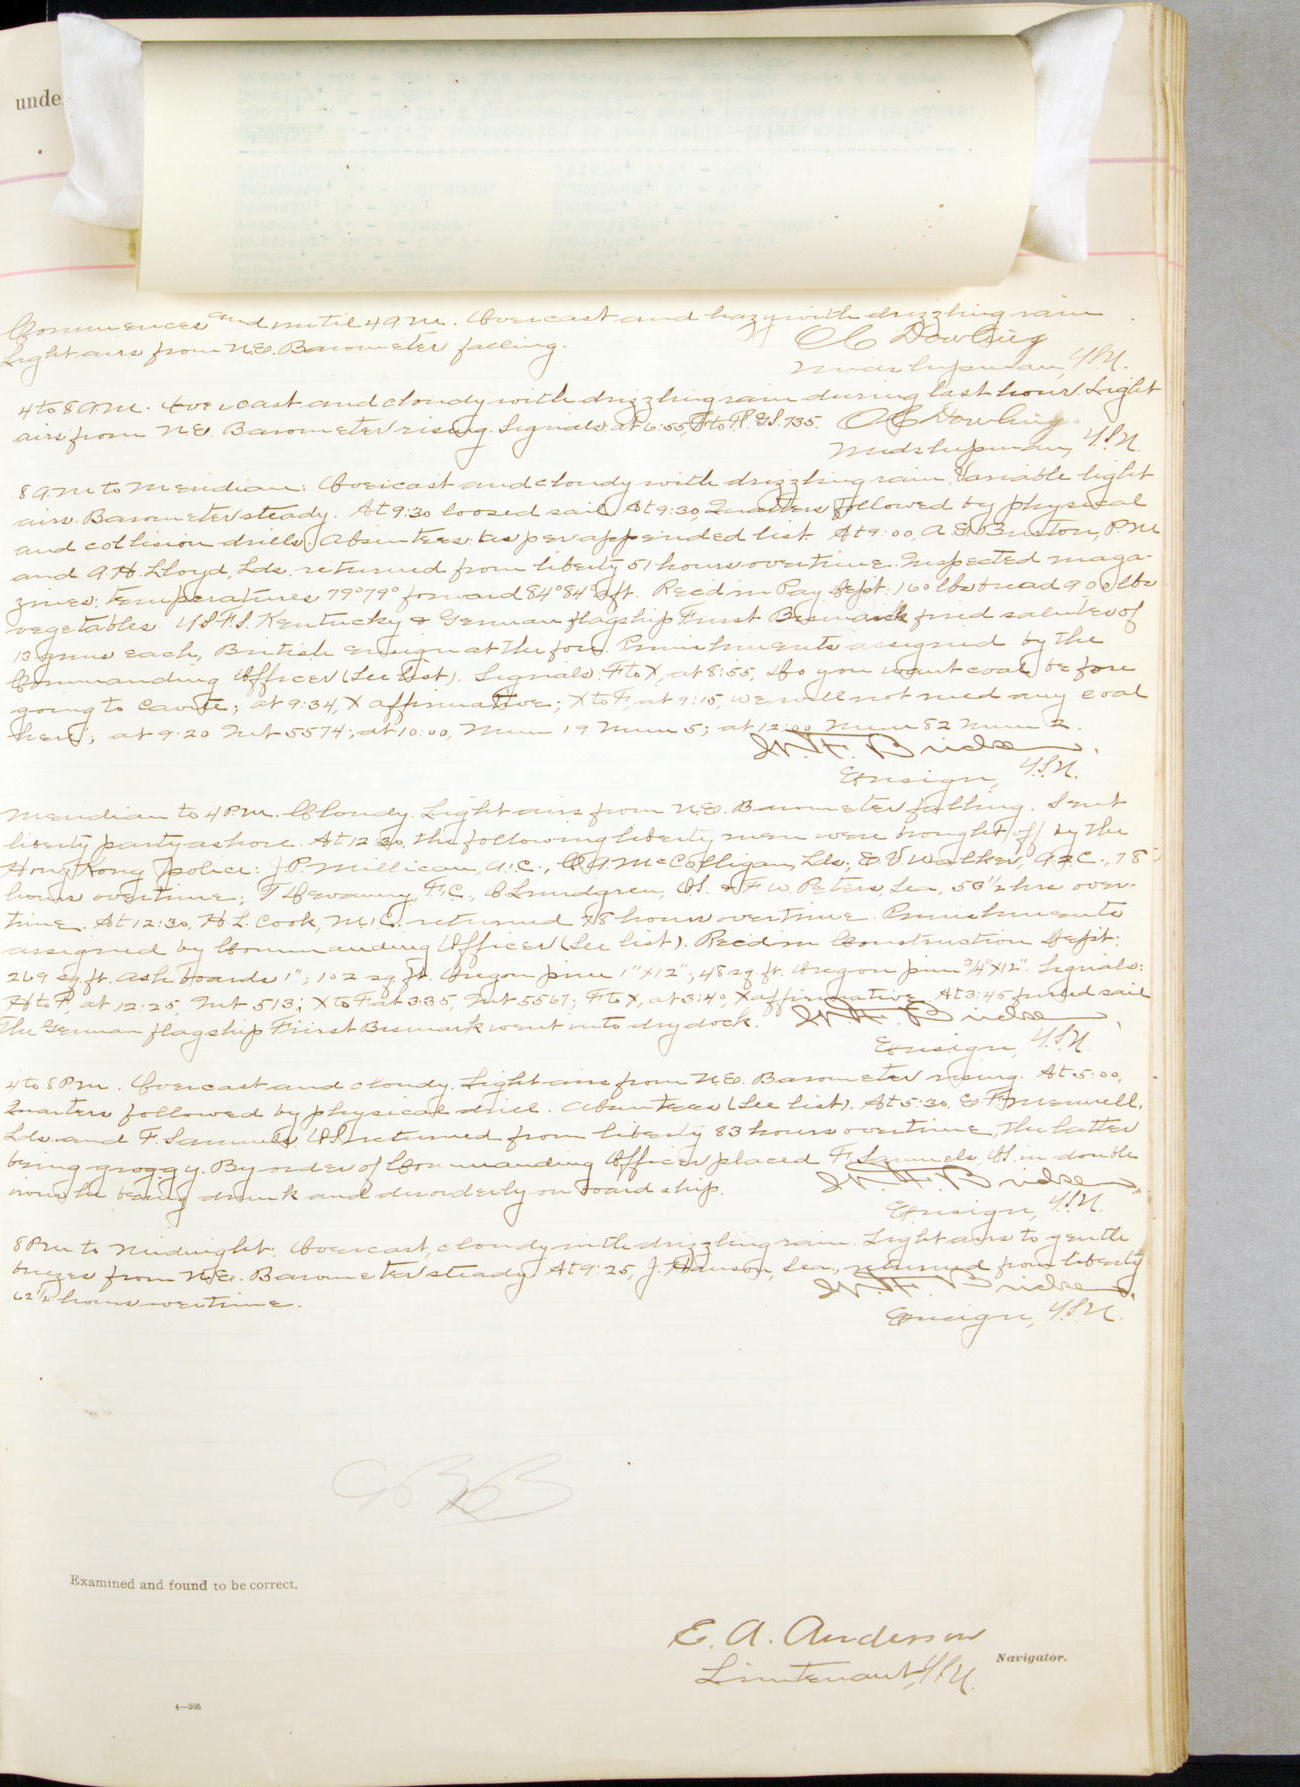 unde
Commences and until 4 a.m. Overcast and hazy with drizzling rain
Light airs from N.E. Barometer falling.
O C Dowling
Midshipman, U.S.N.
4 to 8 a.m. Overcast and cloudy with drizzling rain during last hour. Light
airs from N.E. Barometer rising. Signals: at 6:55, F to H. G.S. 735.
O C Dowling
Midshipman, U.S.N.
8 a.m. to Meridian: Overcast and cloudy with drizzling rain. Variable light
airs. Barometer steady. At 9:30 loosed sail. At 9:30, Quarters followed by physical
and collision drills. Absentees: as per appended list. At 9:00, A. E. Burton, P.M.
and A.H. Lloyd, Lds. returned from liberty 51 hours overtime. Inspected maga-
zines; temperatures 79° 79° forward 84° 84° aft. Rec'd in Pay Dept: 160 lbs bread 90 lbs
vegetables. U.S.F.S. Kentucky & German flagship Furst Bismarck fired salutes of
13 guns each, British ensign at the fore. Punishments assigned by the
Commanding Officer (See list). Signals: F to X, at 8:55, Do you want coal before
going to Cavite; at 9:34, X affirmative; X to F, at 9:15, we will not need any coal
here; at 9:20 Int 5574; at 10:00, Mum 19 Mum 5; at 12:00 Mum 82 Mum 2.
Ensign, U.S.N.
Meridian to 4 P.M. Cloudy. Light airs from N.E. Barometer falling. Sent
liberty party ashore. At 12:30, the following liberty men were brought off by the
Hong Kong police: J.P. Millican, A.C., C.A. McColligan, Lds; E.V. Walker, 78
hours overtime; T Devanny, F.C., C Lundgren, O.S. & F.W. Peters, Sea, 50½ hrs over-
time. At 12:30, H L. Cook, M.C. returned 78 hours overtime. Punishments
assigned by Commanding Officer (See list). Rec'd in Construction Dept:
269 sq. ft. ash boards 1"; 102 sq. ft. Oregon pine 1"x12"; 48 sq. ft. Oregon pine ¾"x12". Signals:
H to F, at 12:25, Int 513; X to F at 3:35, Int 5567; F to X, at 3:40, X affirmative. At 3:45 furled sail
The German flagship Fürst Bismark went into dry dock.
Ensign, U.S.N.
4 to 8 P.M. Overcast and cloudy. Light airs from N.E. Barometer rising. At 5:00,
Quarters followed by physical drill. Absentees (See list). At 5:30, E. F. Menwell,
Lds. and F. Samuels, O.S. returned from liberty 83 hours overtime, the latter
being groggy. By order of Commanding Officer placed F. Samuels, O.S. in double
irons he being drunk and disorderly on board ship.
Ensign, U.S.N.
8 P.M. to Midnight: Overcast, cloudy with drizzling rain. Light airs to gentle
breezes from N.E. Barometer steady. At 9:25, J. Hanson, Sea, returned from liberty
62½ hours overtime.
Ensign, U.S.N.
Examined and found to be correct.
E. A. Anderson
Lieutenant, U.S.N.
Navigator.
4—205